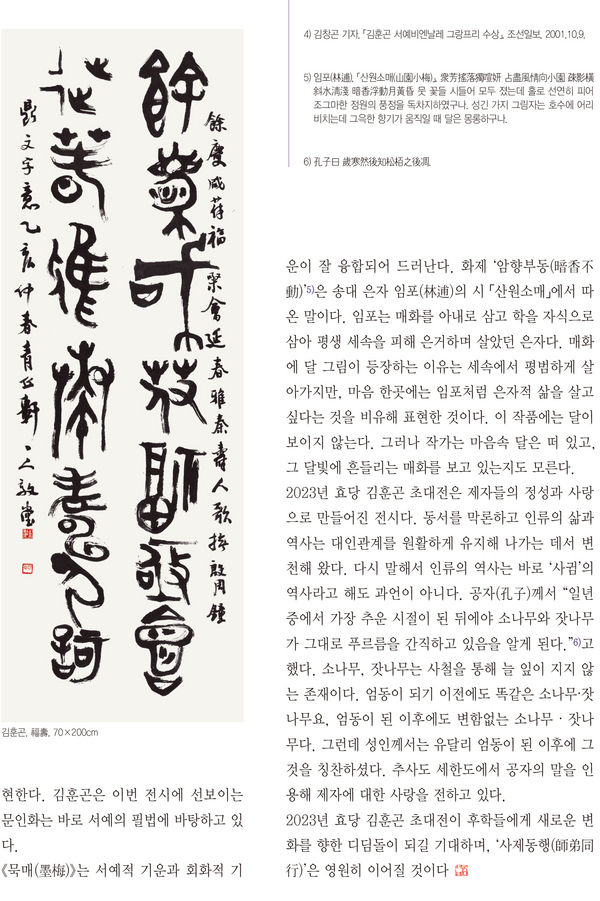 餘慶咸荷福聚會延春雅奏壽人歌
鼎文字意乙亥仲春青丘軒
김훈곤, 福壽, 70×200cm
현한다. 김훈곤은 이번 전시에 선보이는
문인화는 바로 서예의 필법에 바탕하고 있
다.
《묵매(墨梅)》는 서예적 기운과 회화적 기
4) 김창곤 기자, 「김훈곤 서예비엔날레 그랑프리 수상」, 조선일보, 2001.10.9.
5) 임포(林逋), 「산원소매(山園小梅)」, 衆芳搖落獨暄妍 占盡風情向小園 疎影橫
斜水淸淺 暗香浮動月黃昏 뭇 꽃들 시들어 모두 졌는데 홀로 선연히 피어
조그마한 정원의 풍정을 독차지하였구나. 성긴 가지 그림자는 호수에 어리
비치는데 그윽한 향기가 움직일 때 달은 몽롱하구나.
6) 孔子曰 歲寒然後知松栢之後凋.
운이 잘 융합되어 드러난다. 화제 ‘암향부동(暗香不
動)’5)은 송대 은자 임포(林逋)의 시 「산원소매」에서 따
온 말이다. 임포는 매화를 아내로 삼고 학을 자식으로
삼아 평생 세속을 피해 은거하며 살았던 은자다. 매화
에 달 그림이 등장하는 이유는 세속에서 평범하게 살
아가지만, 마음 한곳에는 임포처럼 은자적 삶을 살고
싶다는 것을 비유해 표현한 것이다. 이 작품에는 달이
보이지 않는다. 그러나 작가는 마음속 달은 떠 있고,
그 달빛에 흔들리는 매화를 보고 있는지도 모른다.
2023년 효당 김훈곤 초대전은 제자들의 정성과 사랑
으로 만들어진 전시다. 동서를 막론하고 인류의 삶과
역사는 대인관계를 원활하게 유지해 나가는 데서 변
천해 왔다. 다시 말해서 인류의 역사는 바로 ‘사귐’의
역사라고 해도 과언이 아니다. 공자(孔子)께서 “일년
중에서 가장 추운 시절이 된 뒤에야 소나무와 잣나무
가 그대로 푸르름을 간직하고 있음을 알게 된다.”6)고
했다. 소나무, 잣나무는 사철을 통해 늘 잎이 지지 않
는 존재이다. 엄동이 되기 이전에도 똑같은 소나무·잣
나무요, 엄동이 된 이후에도 변함없는 소나무 · 잣나
무다. 그런데 성인께서는 유달리 엄동이 된 이후에 그
것을 칭찬하셨다. 추사도 세한도에서 공자의 말을 인
용해 제자에 대한 사랑을 전하고 있다.
2023년 효당 김훈곤 초대전이 후학들에게 새로운 변
화를 향한 디딤돌이 되길 기대하며, ‘사제동행(師弟同
行)’은 영원히 이어질 것이다